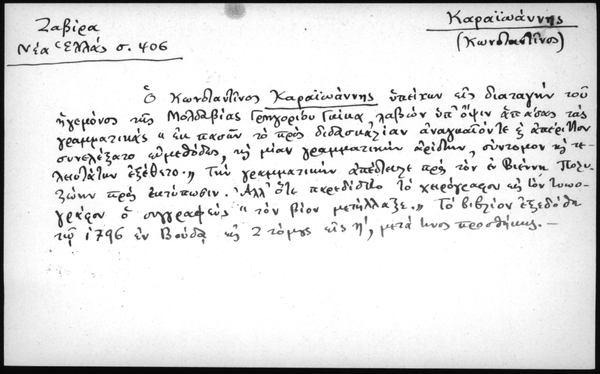 Ζαβίρα
Νέα Ἑλλάς σ. 406
Καραϊωάννης
(Κωνσταντῖνος)
Ὁ Κωνσταντῖνος Καραϊωάννης ὑπείκων εἰς διαταγήν τοῦ
ἡγεμόνος τῆς Μολδαβίας Γρηγορίου Γκίκα, λαβών ὑπ' ὄψιν ἁπάσας τάς
γραμματικάς "ἐκ πασῶν τό πρός διδασκαλίαν ἀναγκαῖόν τε ἀπέριττον
συνελέξατο εὐμεθόδως, καί μίαν γραμματικήν ἀρίστην, σύντομον καί τε-
λειοτάτην ἐξέθετο." Τήν γραμματικήν ἀπέστειλε πρός τόν ἐν Βιέννῃ Πολυ-
ζώην πρός ἐκτύπωσιν. Ἀλλ' ὅτε παρεδίδετο τό χειρόγραφον εἰς τόν τυπο-
γράφον ὁ συγγραφεύς "τόν βίον μετήλλαξε." Τό βιβλίον ἐξεδόθη
τῷ 1796 ἐν Βούδᾳ εἰς 2 τόμους εἰς η', μετά τινος προσθήκης.—